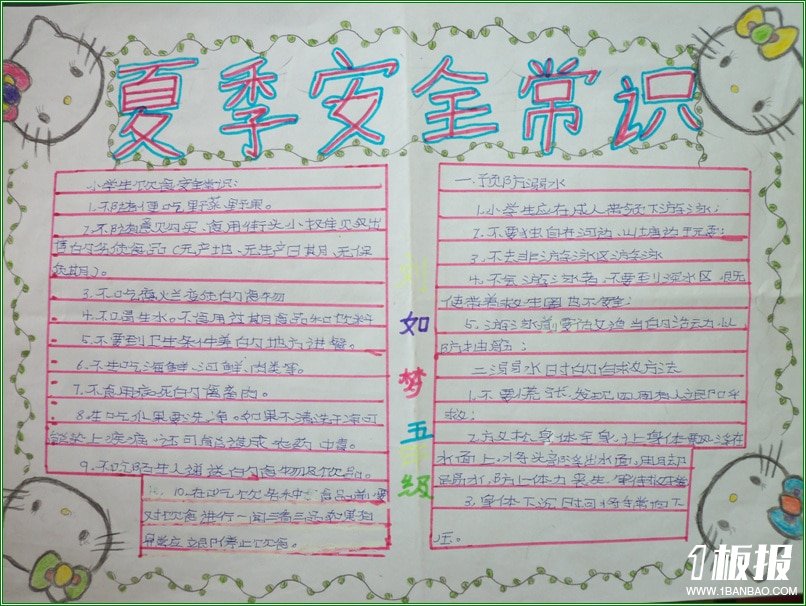 夏季安全常识
小学生饮食安全常识:
1.不随便吃野菜野果。
2.不随意购买、食用街头小摊贩出
售的劣质食品(无产地、无生产日期、无保
质期)。
3.不吃腐烂变质的食物
4.不喝生水。不食用过期食品和饮料
5.不要到卫生条件差的地方进餐。
6.不生吃海鲜、河鲜、肉类等。
7.不食用病死的禽畜肉。
8.生吃水果要洗净。如果不清洗干净可
能染上疾病,还可能造成农药中毒。
9.不吃陌生人递送的食物及饮品。
10.在吃饮
对饮食进行一闻二看三品,如果有
异常应立即停止饮食。
如梦五年级
一.预防溺水
1.小学生应在成人带领下游泳;
2.不要独自在河边、山塘边玩耍;
3.不去非游泳区游泳
4.不会游泳者,不要到深水区,既
使带着救生圈也不安全;
5.游泳前要做适当的活动,以
防抽筋;
二.溺水时的自救方法
1.不要慌张,发现四周有人立即呼
救;
2.放松身体全身,让身体飘浮在
水面上,将头部浮出水面,用脚
踢水,防止体力丧失,等待救援
3.身体下沉时可将手掌向下
压。
1板报
WWW.1BANBAO.COM